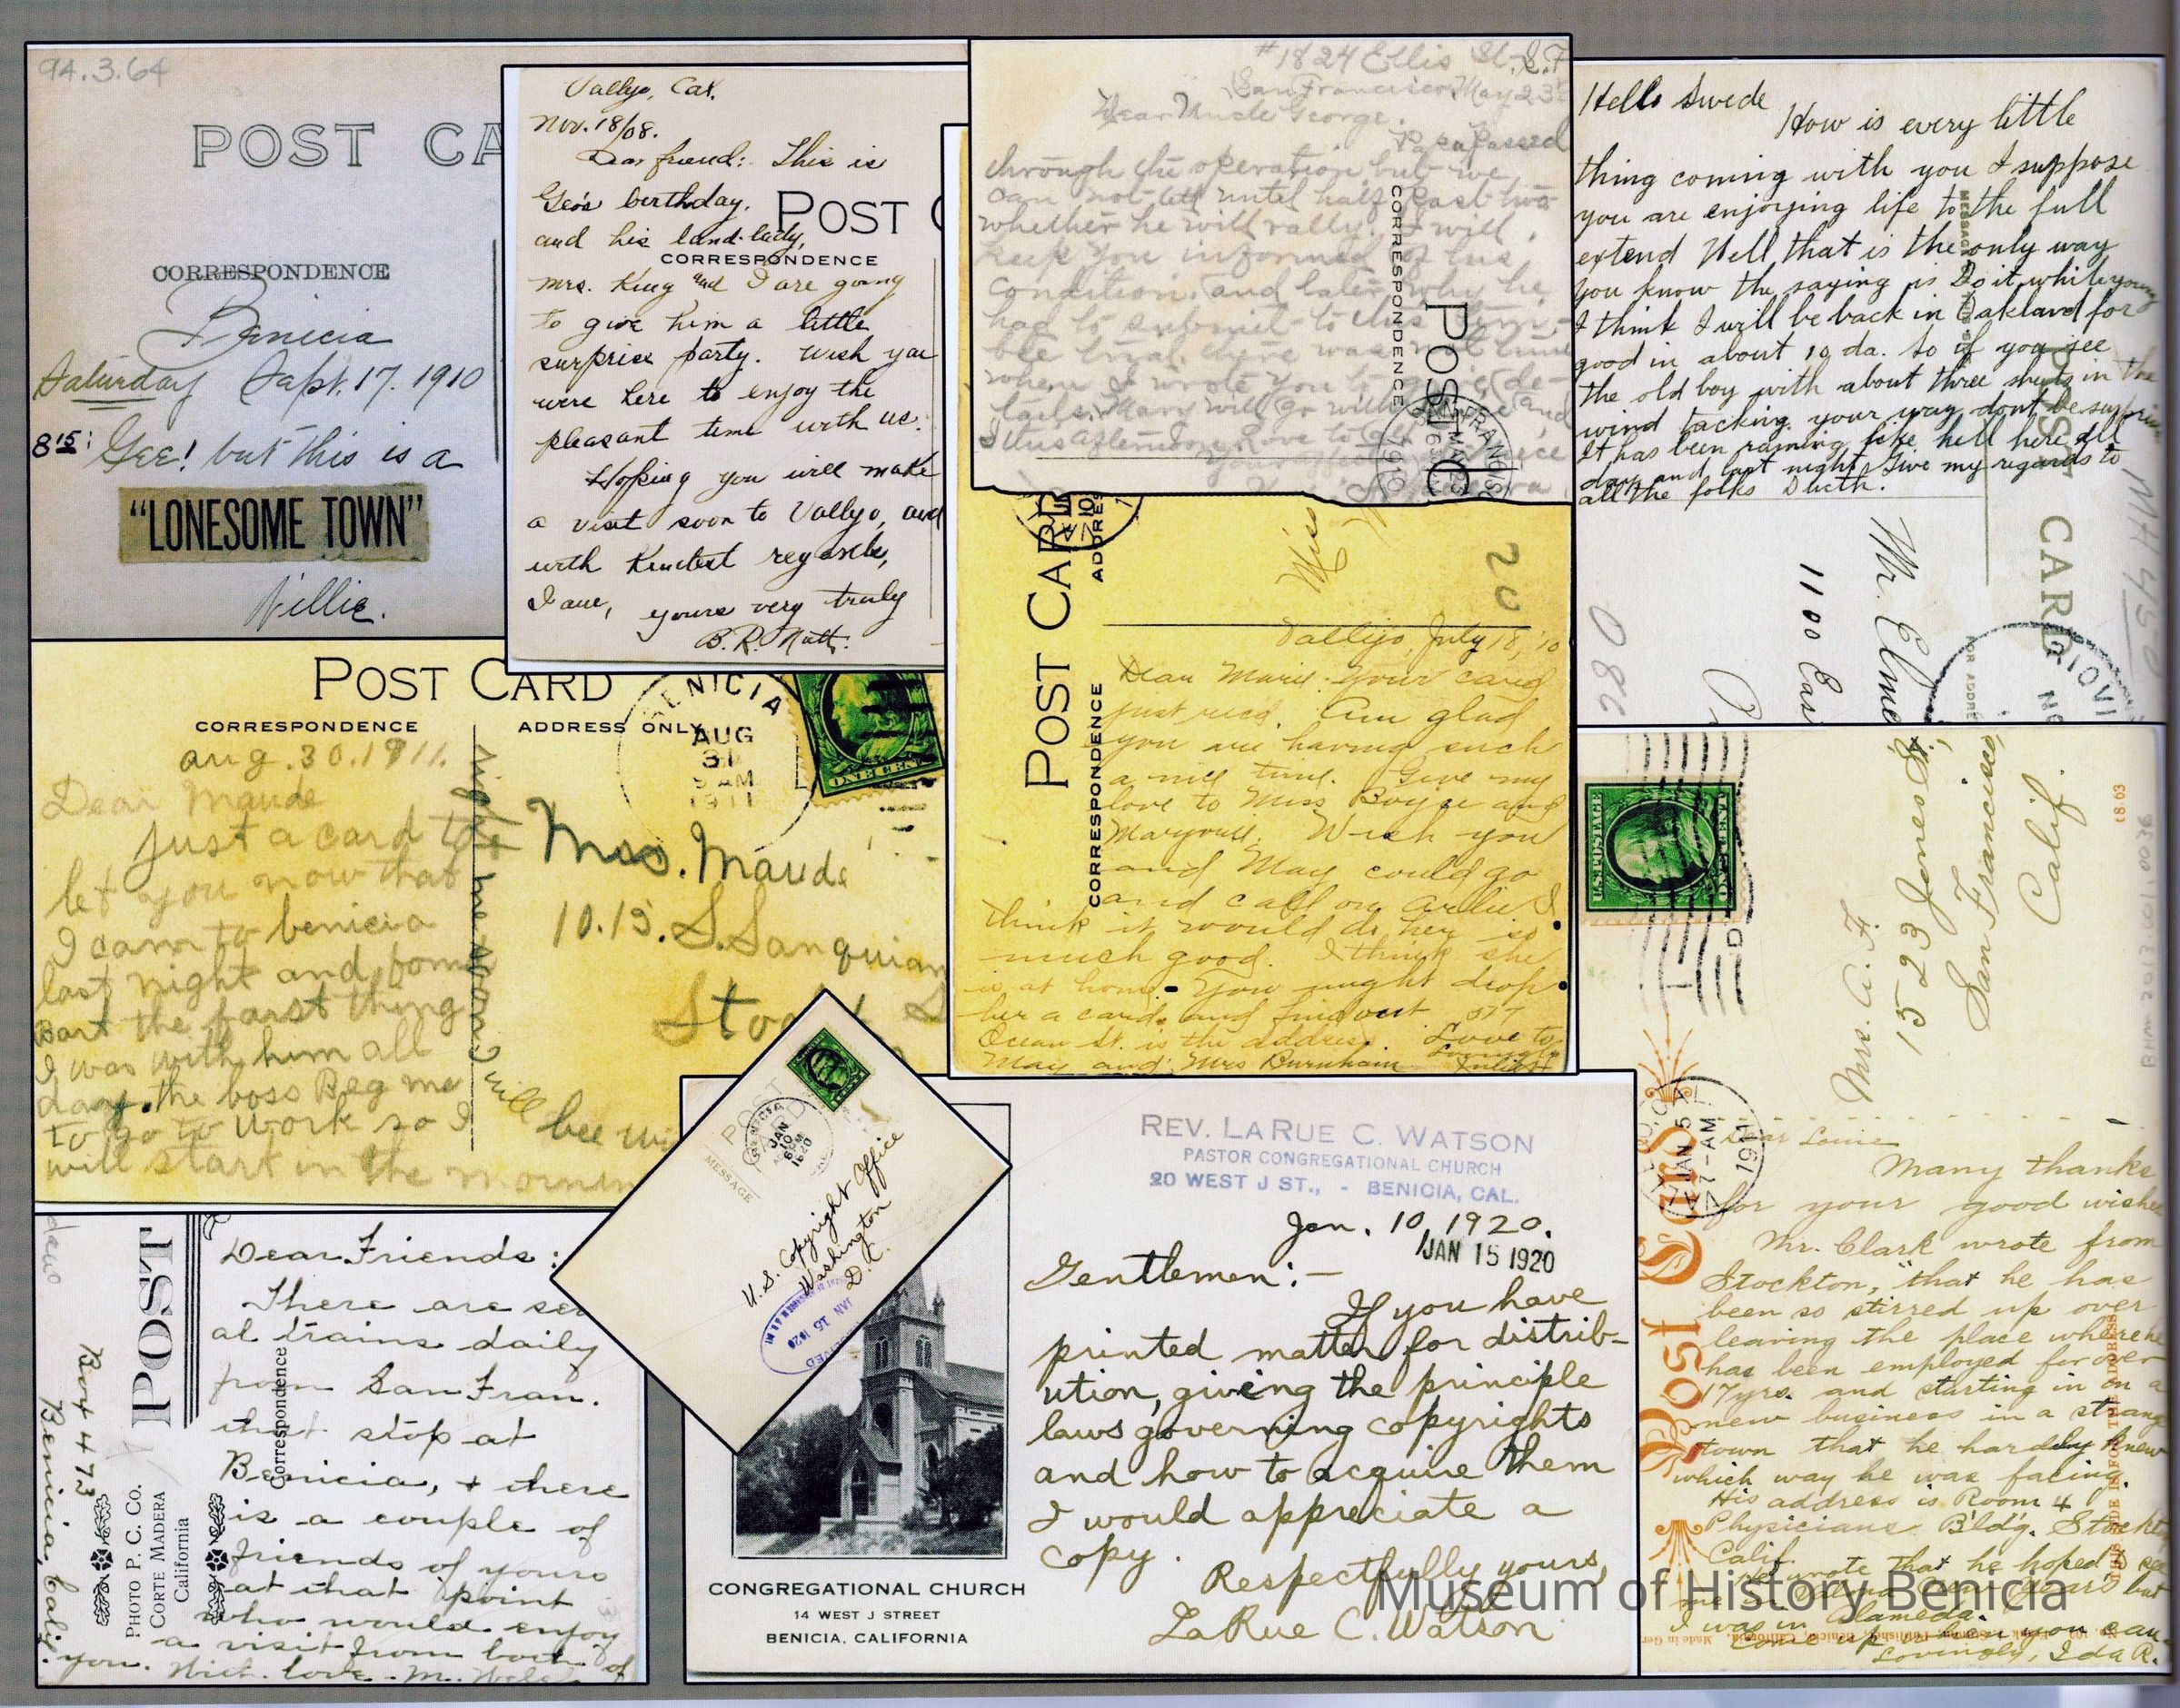 94.3.64
POST CA
CORRESPONDENCE
Benicia
Saturday Sept. 17. 1910
8 15: Gee! but this is a
"LONESOME TOWN"
Nillie.
Vallejo, Cal.
Nov. 18/08.
Dear friend: This is
Geo's birthday,
POST
and his land-lady,
CORRESPONDENCE
Mrs. King and I are going
to give him a little
surprise party. Wish you
were here to enjoy the
pleasant time with us.
Hoping you will make
a visit soon to Vallejo, and
with kindest regards,
I am, yours very truly
B. R. Nutt.
#1824 Ellis St. S.F
San Francisco May 23
Dear Uncle George.
Papa passed
through the operation but we
can not tell until half past two
whether he will rally. I will
keep you informed of his
condition, and later why he
had to submit to this
when I wrote you to give de-
tails. Mary will go with me and
this afternoon. Love to all
CORRESPONDENCE
POST C
Hello Swede
How is every little
thing coming with you I suppose
you are enjoying life to the full
extend Well that is the only way
you know the saying is Do it while young
I think I will be back in Oakland for
good in about 10 da. so if you see
the old boy with about three sheets in the
wind tacking your way dont be surprise
It has been raining like hell here all
day and last night Give my regards to
all the folks Dutch.
CARD
Mr. Elme
1100 Eas
086
POST CARD
CORRESPONDENCE
ADDRESS ONLY
BENICIA
AUG
31
9 AM
1911
ONE CENT
Aug. 30. 1911.
Dear Maude
just a card to
let you now that
I cam to benicia
last night and fom
Bart the farst thing
I was with him all
day. the boss Beg me
to go to work so I
will start in the mornin
will bee
Mrs. Maude
10.15. S. Sanquian
Sto
POST CAR
ADDRES
Miss
20
CORRESPONDENCE
Vallejo, July 18, '10
Dear Marie: Your card
just rec'd. Am glad
you are having such
a nice time. Give my
love to Miss Boyce and
Wish you
and May could go
and call on Arlie I
think it would do her so
much good. I think she
is at home - You might drop
her a card and find out 577
Ocean St. is the address. Love to
May and Mrs Burnham
U.S. POSTAGE
Mrs. A. F.
1523 Jones St,
San Francisco,
Calif.
JAN 5
7-AM
1911
Post Cards
Dear Louie
Many thanks
for your good wishes
Mr. Clark wrote from
Stockton, "that he has
been so stirred up over
leaving the place where he
has been employed for over
17 yrs. and starting in on a
new business in a strange
town that he hardly knew
which way he was facing.
His address is Room 4
Physicians Bldg. Stockton
Calif.
He wrote that he hoped to see
me but
I was in Alameda.
Come up when you can
Lovingly, Ida R.
Dear Friends:
There are sev
al trains daily
from San Fran.
that stop at
Benicia, + there
is a couple of
friends of yours
at that point
who would enjoy
a visit from both of
you. With love - M.
POST
Correspondence
PHOTO P. C. CO.
CORTE MADERA
California
Box 473
Benicia, Calif.
POST CARD
MESSAGE
JAN
10
1920
U. S. Copyright Office
Washington
D.C.
JAN 15 1920
REV. LARUE C. WATSON
PASTOR CONGREGATIONAL CHURCH
20 WEST J ST., - BENICIA, CAL.
Jan. 10, 1920.
JAN 15 1920
Gentlemen:-
If you have
printed matter for distrib-
ution, giving the principle
laws governing copyrights
and how to acquire them
I would appreciate a
copy.
Respectfully yours,
LaRue C. Watson
CONGREGATIONAL CHURCH
14 WEST J STREET
BENICIA, CALIFORNIA
Museum of History Benicia